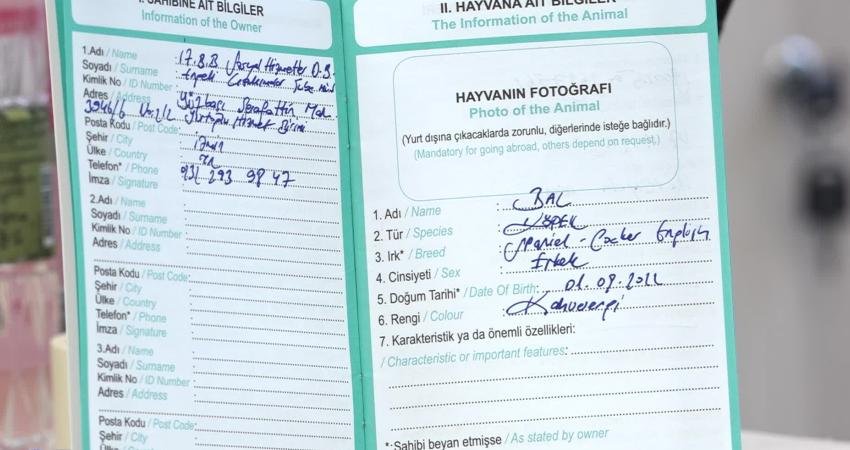 I. SAHİBİNE AİT BİLGİLER
Information of the Owner
1.Adı / Name
Soyadı / Surname
Kimlik No / ID Number
Adres / Address
Posta Kodu / Post Code:
Şehir / City
Ülke / Country
Telefon* / Phone
İmza / Signature
İzmir
TR
293 98 47
2.Adı / Name
Soyadı / Surname
Kimlik No / ID Number
Adres / Address
Posta Kodu / Post Code:
Şehir / City
Ülke / Country
Telefon* / Phone
İmza / Signature
3.Adı / Name
Soyadı / Surname
Kimlik No / ID Number
Adres / Address
Posta Kodu / Post Code:
Şehir / City
II. HAYVANA AİT BİLGİLER
The Information of the Animal
HAYVANIN FOTOĞRAFI
Photo of the Animal
(Yurt dışına çıkacaklarda zorunlu, diğerlerinde isteğe bağlıdır.)
(Mandatory for going abroad, others depend on request.)
1. Adı / Name : BAL
2. Tür / Species : KÖPEK
3. Irk* / Breed : Spaniel - Cocker English
4. Cinsiyeti / Sex : Erkek
5. Doğum Tarihi* / Date Of Birth: 01.09.2022
6. Rengi / Colour : Kahverengi
7. Karakteristik ya da önemli özellikleri:
/ Characteristic or important features:
*:Sahibi beyan etmişse / As stated by owner